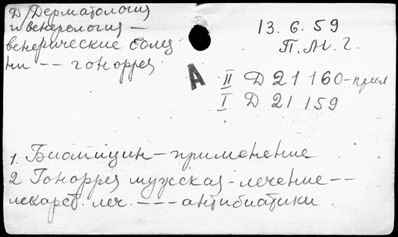 Д/Дерматология
и венерология –
венерические болез
ни -- гоноррея
13.6.59
П.М.Г.
А
II Д 21 160-прил
I Д 21 159
1. Биомицин – применение
2 Гоноррея мужская - лечение --
лекарств. леч. --- антибиотики